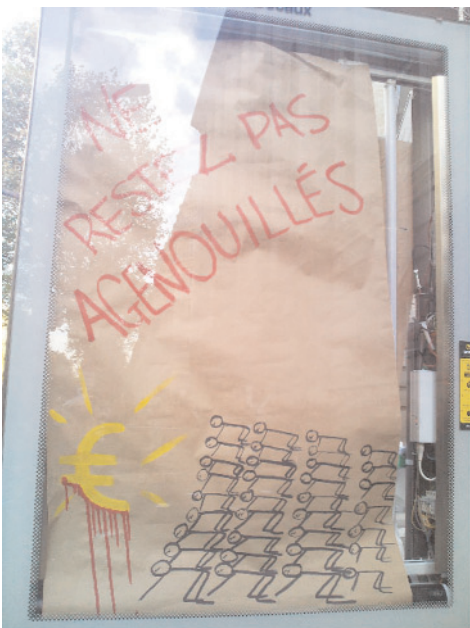 NE
RESTEZ PAS
AGENOUILLÉS
€